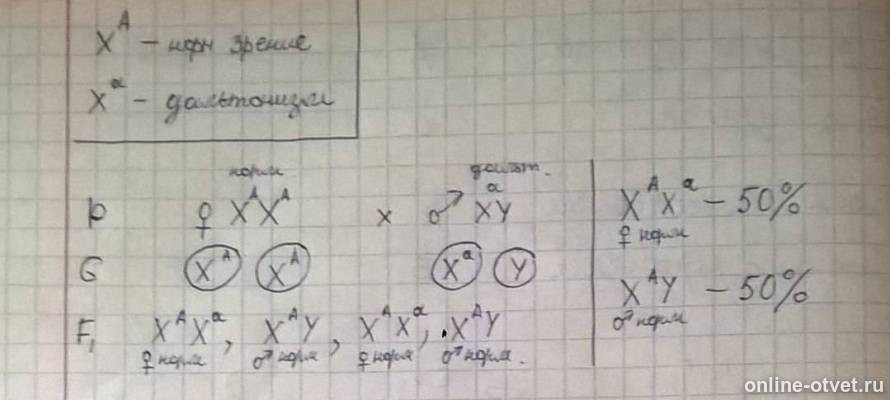 X^A – норм зрение
X^a – дальтонизм
норм дальт.
P ♀ X^A X^A x ♂ X^a Y
G X^A X^A X^a Y
F₁ X^A X^a, X^A Y, X^A X^a, X^A Y
♀ норм ♂ норм ♀ норм ♂ норм.
X^A X^a – 50%
♀ норм
X^A Y – 50%
♂ норм
online-otvet.ru